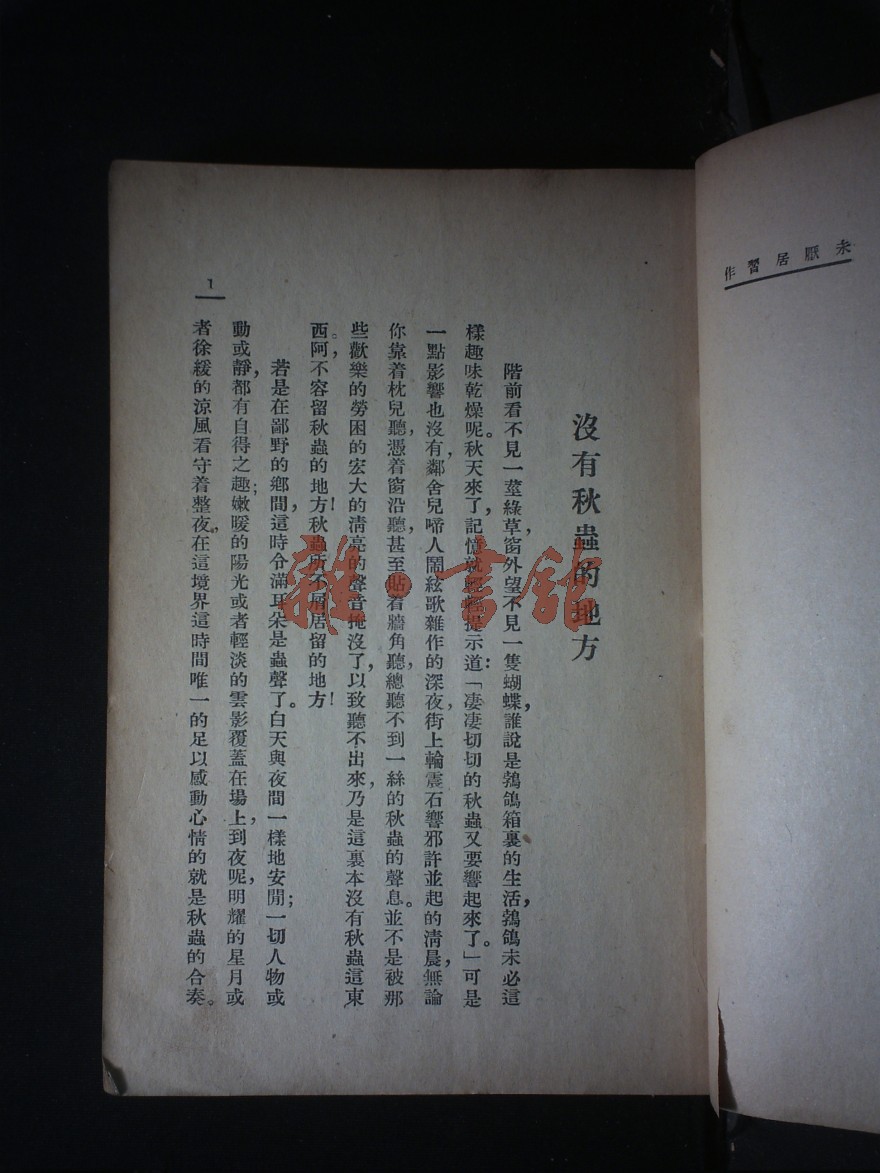 未厭居習作
沒有秋蟲的地方
階前看不見一莖綠草，窗外望不見一隻蝴蝶，誰說是鵓鴿箱裏的生活，鵓鴿未必這
樣趣味乾燥呢。秋天來了，記憶就輕輕提示道：「凄凄切切的秋蟲又要響起來了。」可是
一點影響也沒有，鄰舍兒啼人鬧絃歌雜作的深夜，街上輪震石響邪許並起的清晨，無論
你靠着枕兒聽，憑着窗沿聽，甚至貼着牆角聽，總聽不到一絲的秋蟲的聲息。並不是被那
些歡樂的勞困的宏大的清亮的聲音掩沒了，以致聽不出來，乃是這裏本沒有秋蟲這東
西。阿，不容留秋蟲的地方！秋蟲所不屑居留的地方！
若是在鄙野的鄉間，這時令滿耳朵是蟲聲了。白天與夜間一樣地安閒；一切人物或
動或靜，都有自得之趣；嫩暖的陽光或者輕淡的雲影覆蓋在場上，到夜呢，明耀的星月或
者徐緩的涼風看守着整夜，在這境界這時間唯一的足以感動心情的就是秋蟲的合奏。
1
雜·書館